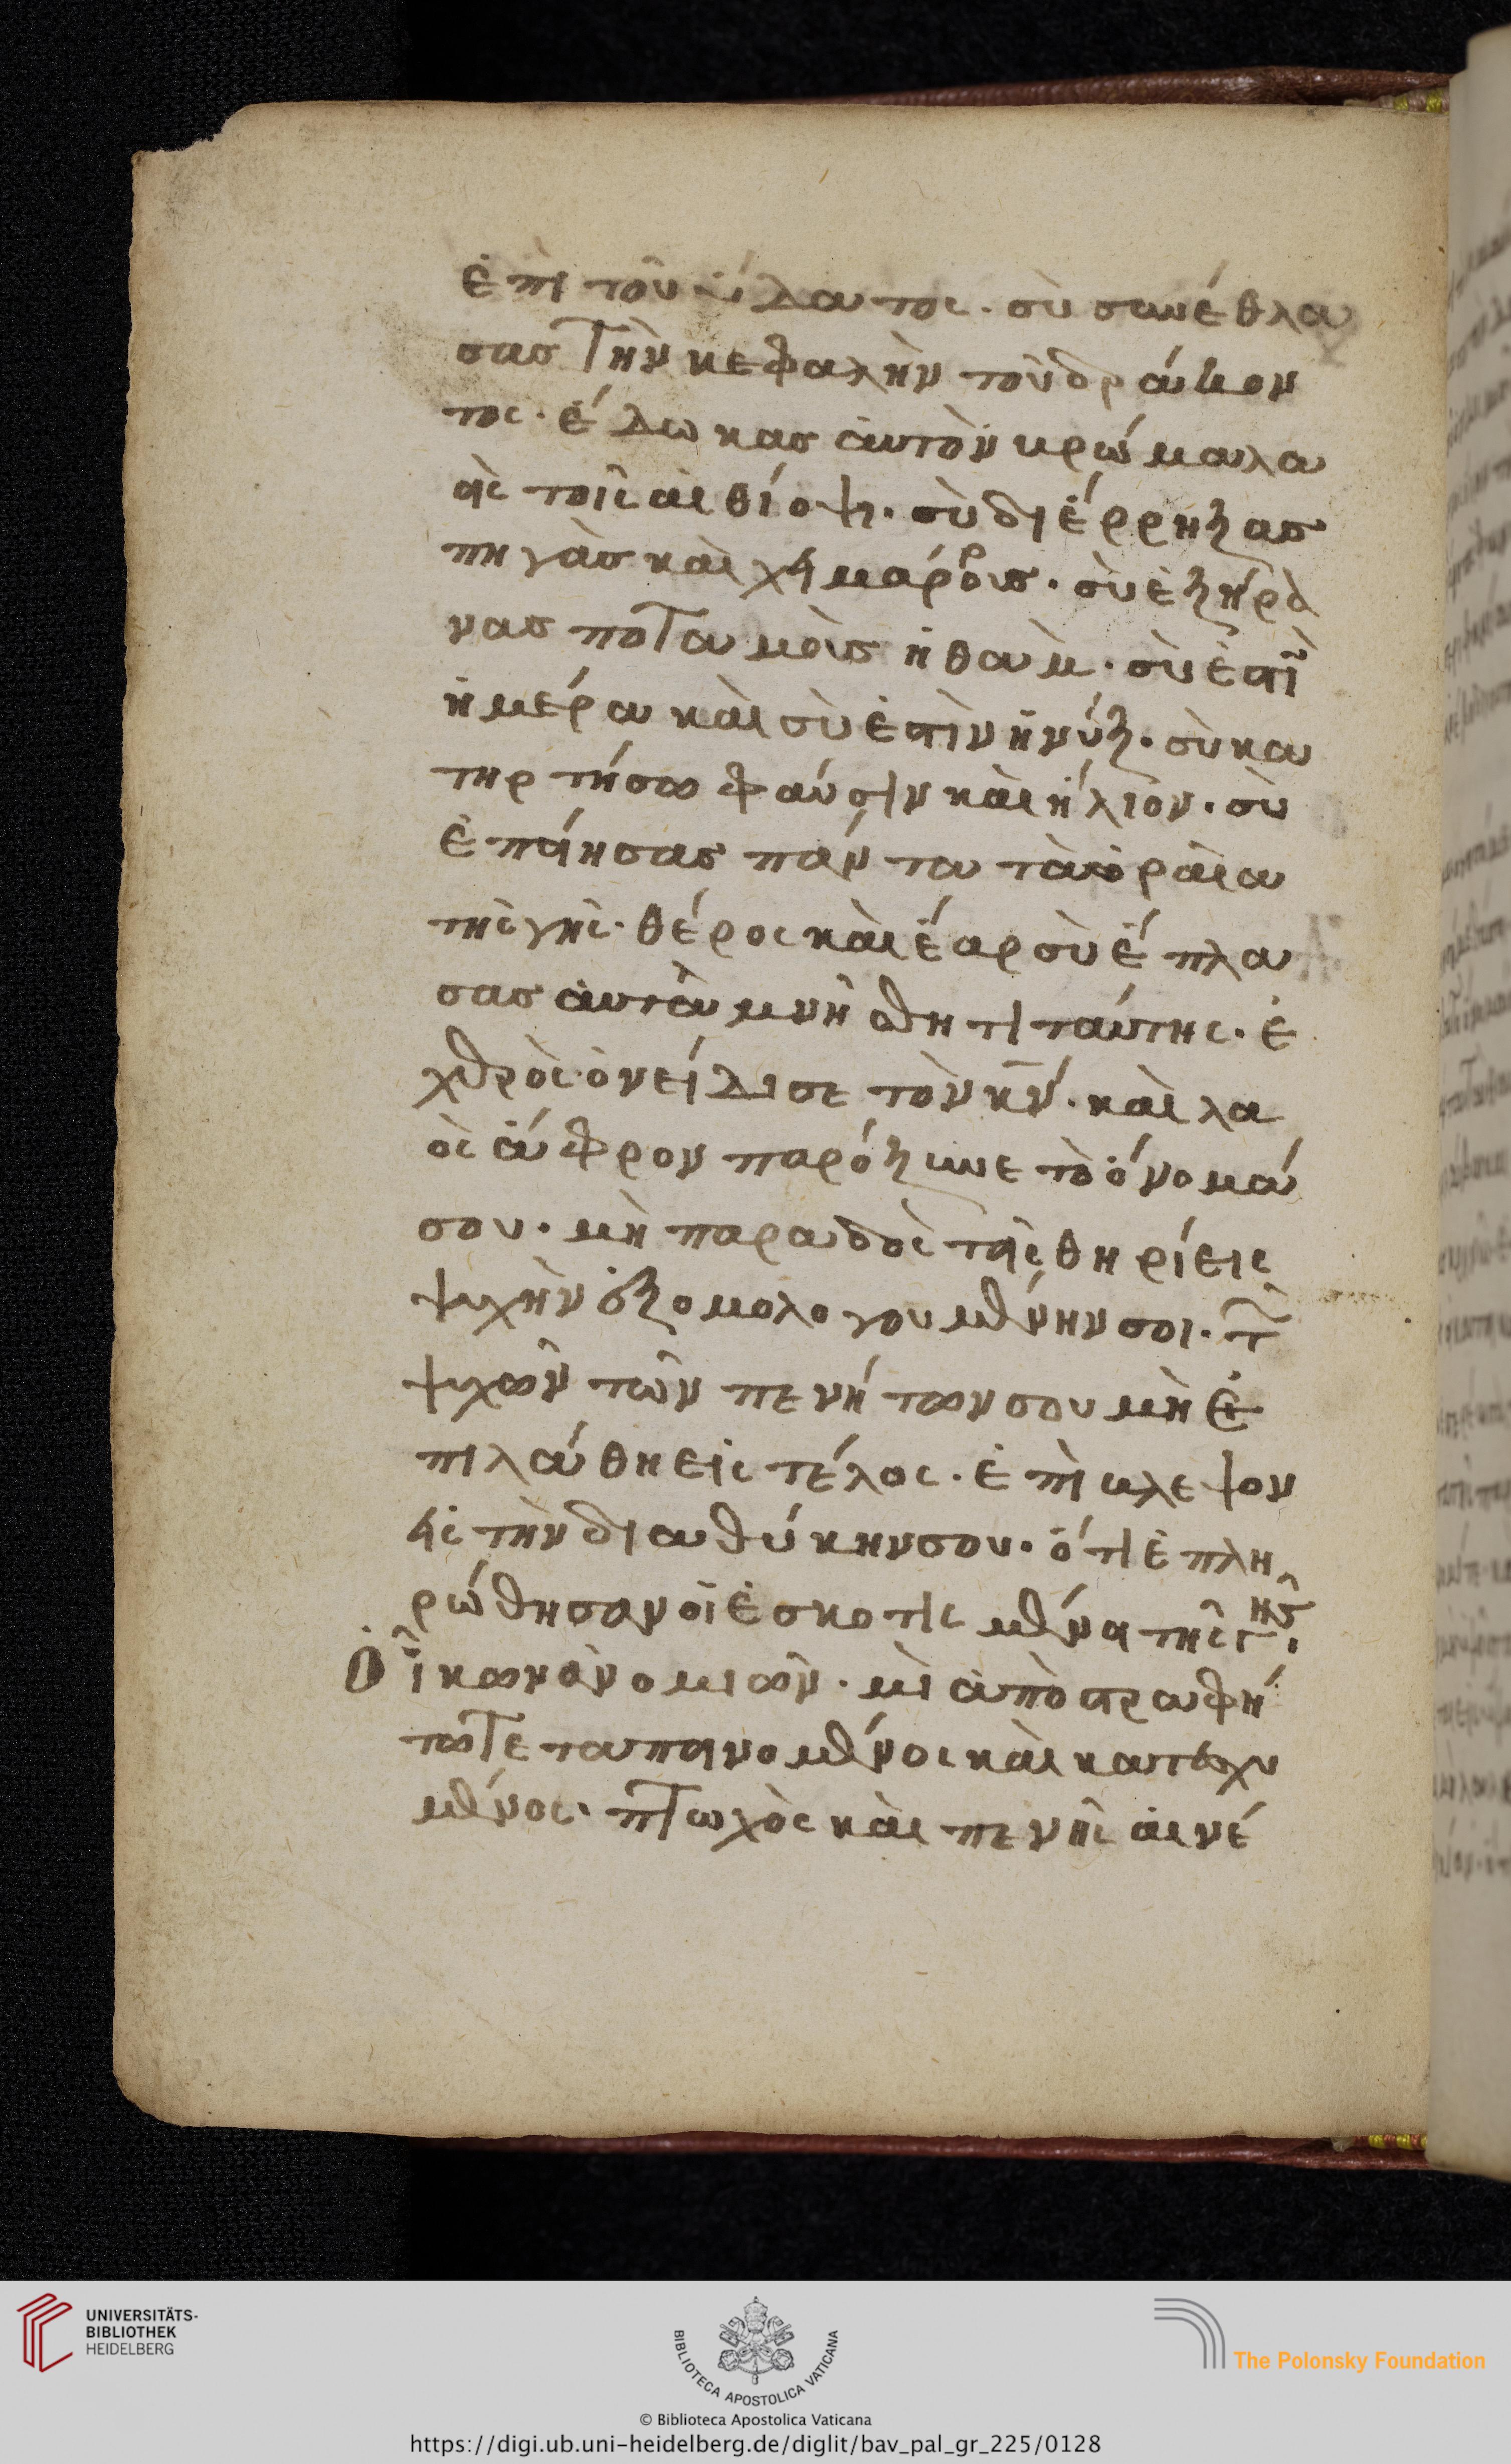 ἐπὶ τοῦ ὕδατος. σὺ συνέθλα
σας τὴν κεφαλὴν τοῦ δράκον
τος. ἔδωκας αὐτὸν κρώμα λα
οῖς τοῖς αἰθίοψι. σὺ διέρρηξας
πηγὰς καὶ χειμάρρους. σὺ ἐξήρα
νας ποταμοὺς ἠθάμ. σὺ ἐστὶ
ἡμέρα καὶ σὺ ἐστὶν ἡ νύξ. σὺ κα
τηρτήσω φαύσιν καὶ ἥλιον. σὺ
ἐποίησας πάντα τὰ ὁραῖα
τῆς γῆς. θέρος καὶ ἔαρ σὺ ἔπλα
σας αὐτὰ μνήσθητι ταύτης. ἐ
χθρὸς ὀνείδισε τὸν κν. καὶ λα
ὸς ἄφρον παρόξυνε τὸ ὄνομά
σου. μὴ παραδὸς τοῖς θηρίεις
ψυχὴν ἐξομολογουμένην σοι. τ
ψυχῶν τῶν πενήτων σου μὴ ἐ
πιλάθη εἰς τέλος. ἐπὶβλεψον
εἰς τὴν διαθύκην σου. ὅτι ἐπλη
ρώθησαν οἱ ἐσκοτισμένοι τῆς γῆς.
Οἴκων ἀνομιῶν. μὶ ἀπὸστραφή
τωτε ταπεινομένος καὶ κατεσχυ
μένος. πτωχὸς καὶ πενῆς αἰνέ
UNIVERSITÄTS-
BIBLIOTHEK
HEIDELBERG
BIBLIOTECA APOSTOLICA VATICANA
© Biblioteca Apostolica Vaticana
The Polonsky Foundation
https://digi.ub.uni-heidelberg.de/diglit/bav_pal_gr_225/0128